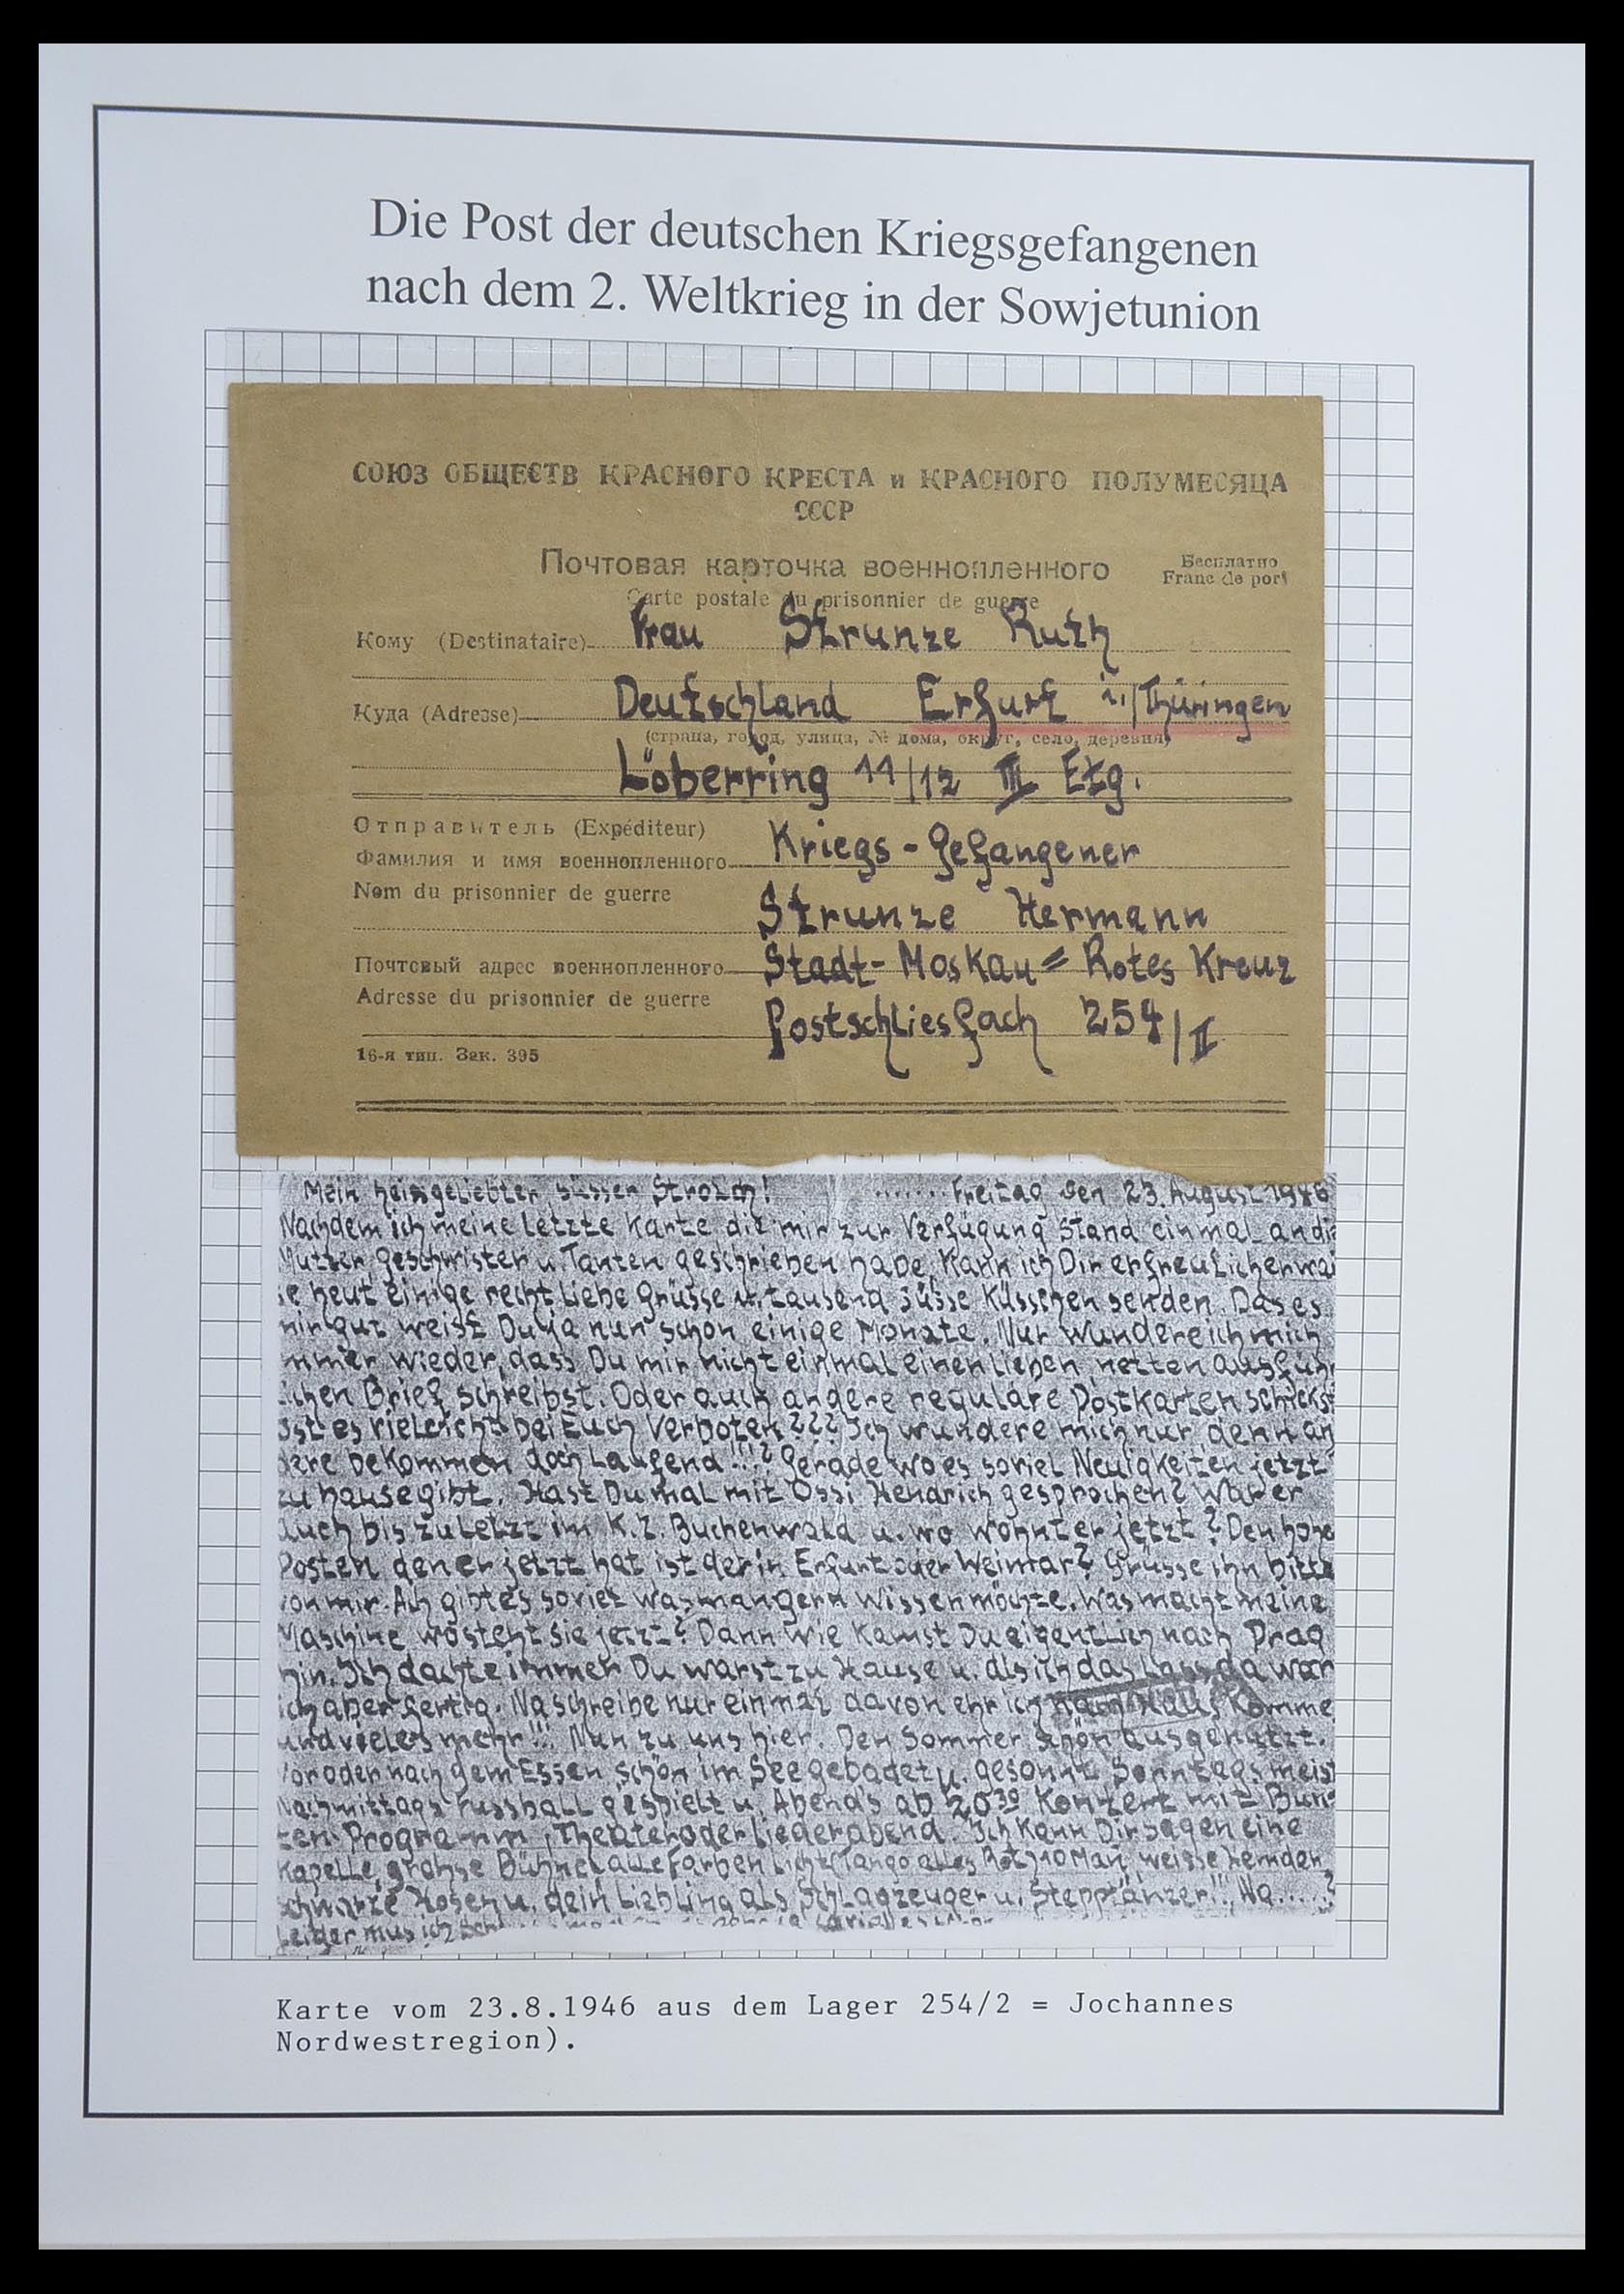 Die Post der deutschen Kriegsgefangenen
nach dem 2. Weltkrieg in der Sowjetunion
СОЮЗ ОБЩЕСТВ КРАСНОГО КРЕСТА и КРАСНОГО ПОЛУМЕСЯЦА
СССР
Почтовая карточка военнопленного
Бесплатно
Franc de port
Carte postale du prisonnier de guerre
Кому (Destinataire) Frau Strunze Ruth
Куда (Adresse) Deutschland Erfurt i./Thüringen
(страна, город, улица, № дома, округ, село, деревня)
Löberring 11/12 III Etg.
Отправитель (Expéditeur)
Фамилия и имя военнопленного Kriegs-Gefangener
Nom du prisonnier de guerre
Strunze Hermann
Почтовый адрес военнопленного Stadt-Moskau = Rotes Kreuz
Adresse du prisonnier de guerre
Postschliesfach 254/II
16-я тип. Зак. 395
Mein heisgeliebter süsser Strolch! ....... Freitag den 23. August 1946
Nachdem ich meine letzte Karte, die mir zur Verfügung stand einmal an die
Mutter Geschwister u. Tanten geschrieben habe, kann ich Dir erfreulicherwei
se heut einige recht liebe Grüsse u. tausend süsse Küsschen senden. Das es
mir gut weist Du ja nun schon einige Monate. Nur wundere ich mich
immer wieder, dass Du mir nicht einmal einen lieben, netten ausführ
lichen Brief schreibst. Oder auch andere reguläre Postkarten schickst
Ist es vieleicht bei Euch Verboten??? Ich wundere mich nur, denn an
dere bekommen doch laufend!!!? Gerade wo es soviel Neuigkeiten jetzt
zu hause gibt. Hast Du mal mit Ossi Hendrich gesprochen? War er
auch bis zuletzt im K.Z. Buchenwald u. wo wohnt er jetzt? Den hohe
Posten den er jetzt hat ist der in Erfurt oder Weimar? Grüsse ihn bitte
von mir. Ach gibt es soviel was man gern wissen möchte. Was macht meine
Maschine wo steht sie jetzt? Dann wie kamst Du eigentlich nach Prag
hin. Ich dachte immer Du warst zu Hause u. als ich das lass da war
ich aber fertig. Na schreibe nur einmal davon ehr ich nach Haus komme
und vieles mehr!!! Nun zu uns hier. Den Sommer schön ausgenutzt.
Vor oder nach dem Essen schön im See gebadet u. gesonnt Sonntags meist
Nachmittags Fussball gespielt u. Abends ab 20³⁰ Konzert mit Bun
ten Programm, Theater oder Liederabend. Ich kann Dir sagen eine
Kapelle, grohse Bühne alle Farben Licht (Tango alles Rot) 10 Man, weisse Hemden
schwarze Hosen u. dein Liebling als Schlagzeuger u. Stepptänzer!!! Na.....?
Leider mus ich
Karte vom 23.8.1946 aus dem Lager 254/2 = Jochannes
Nordwestregion).